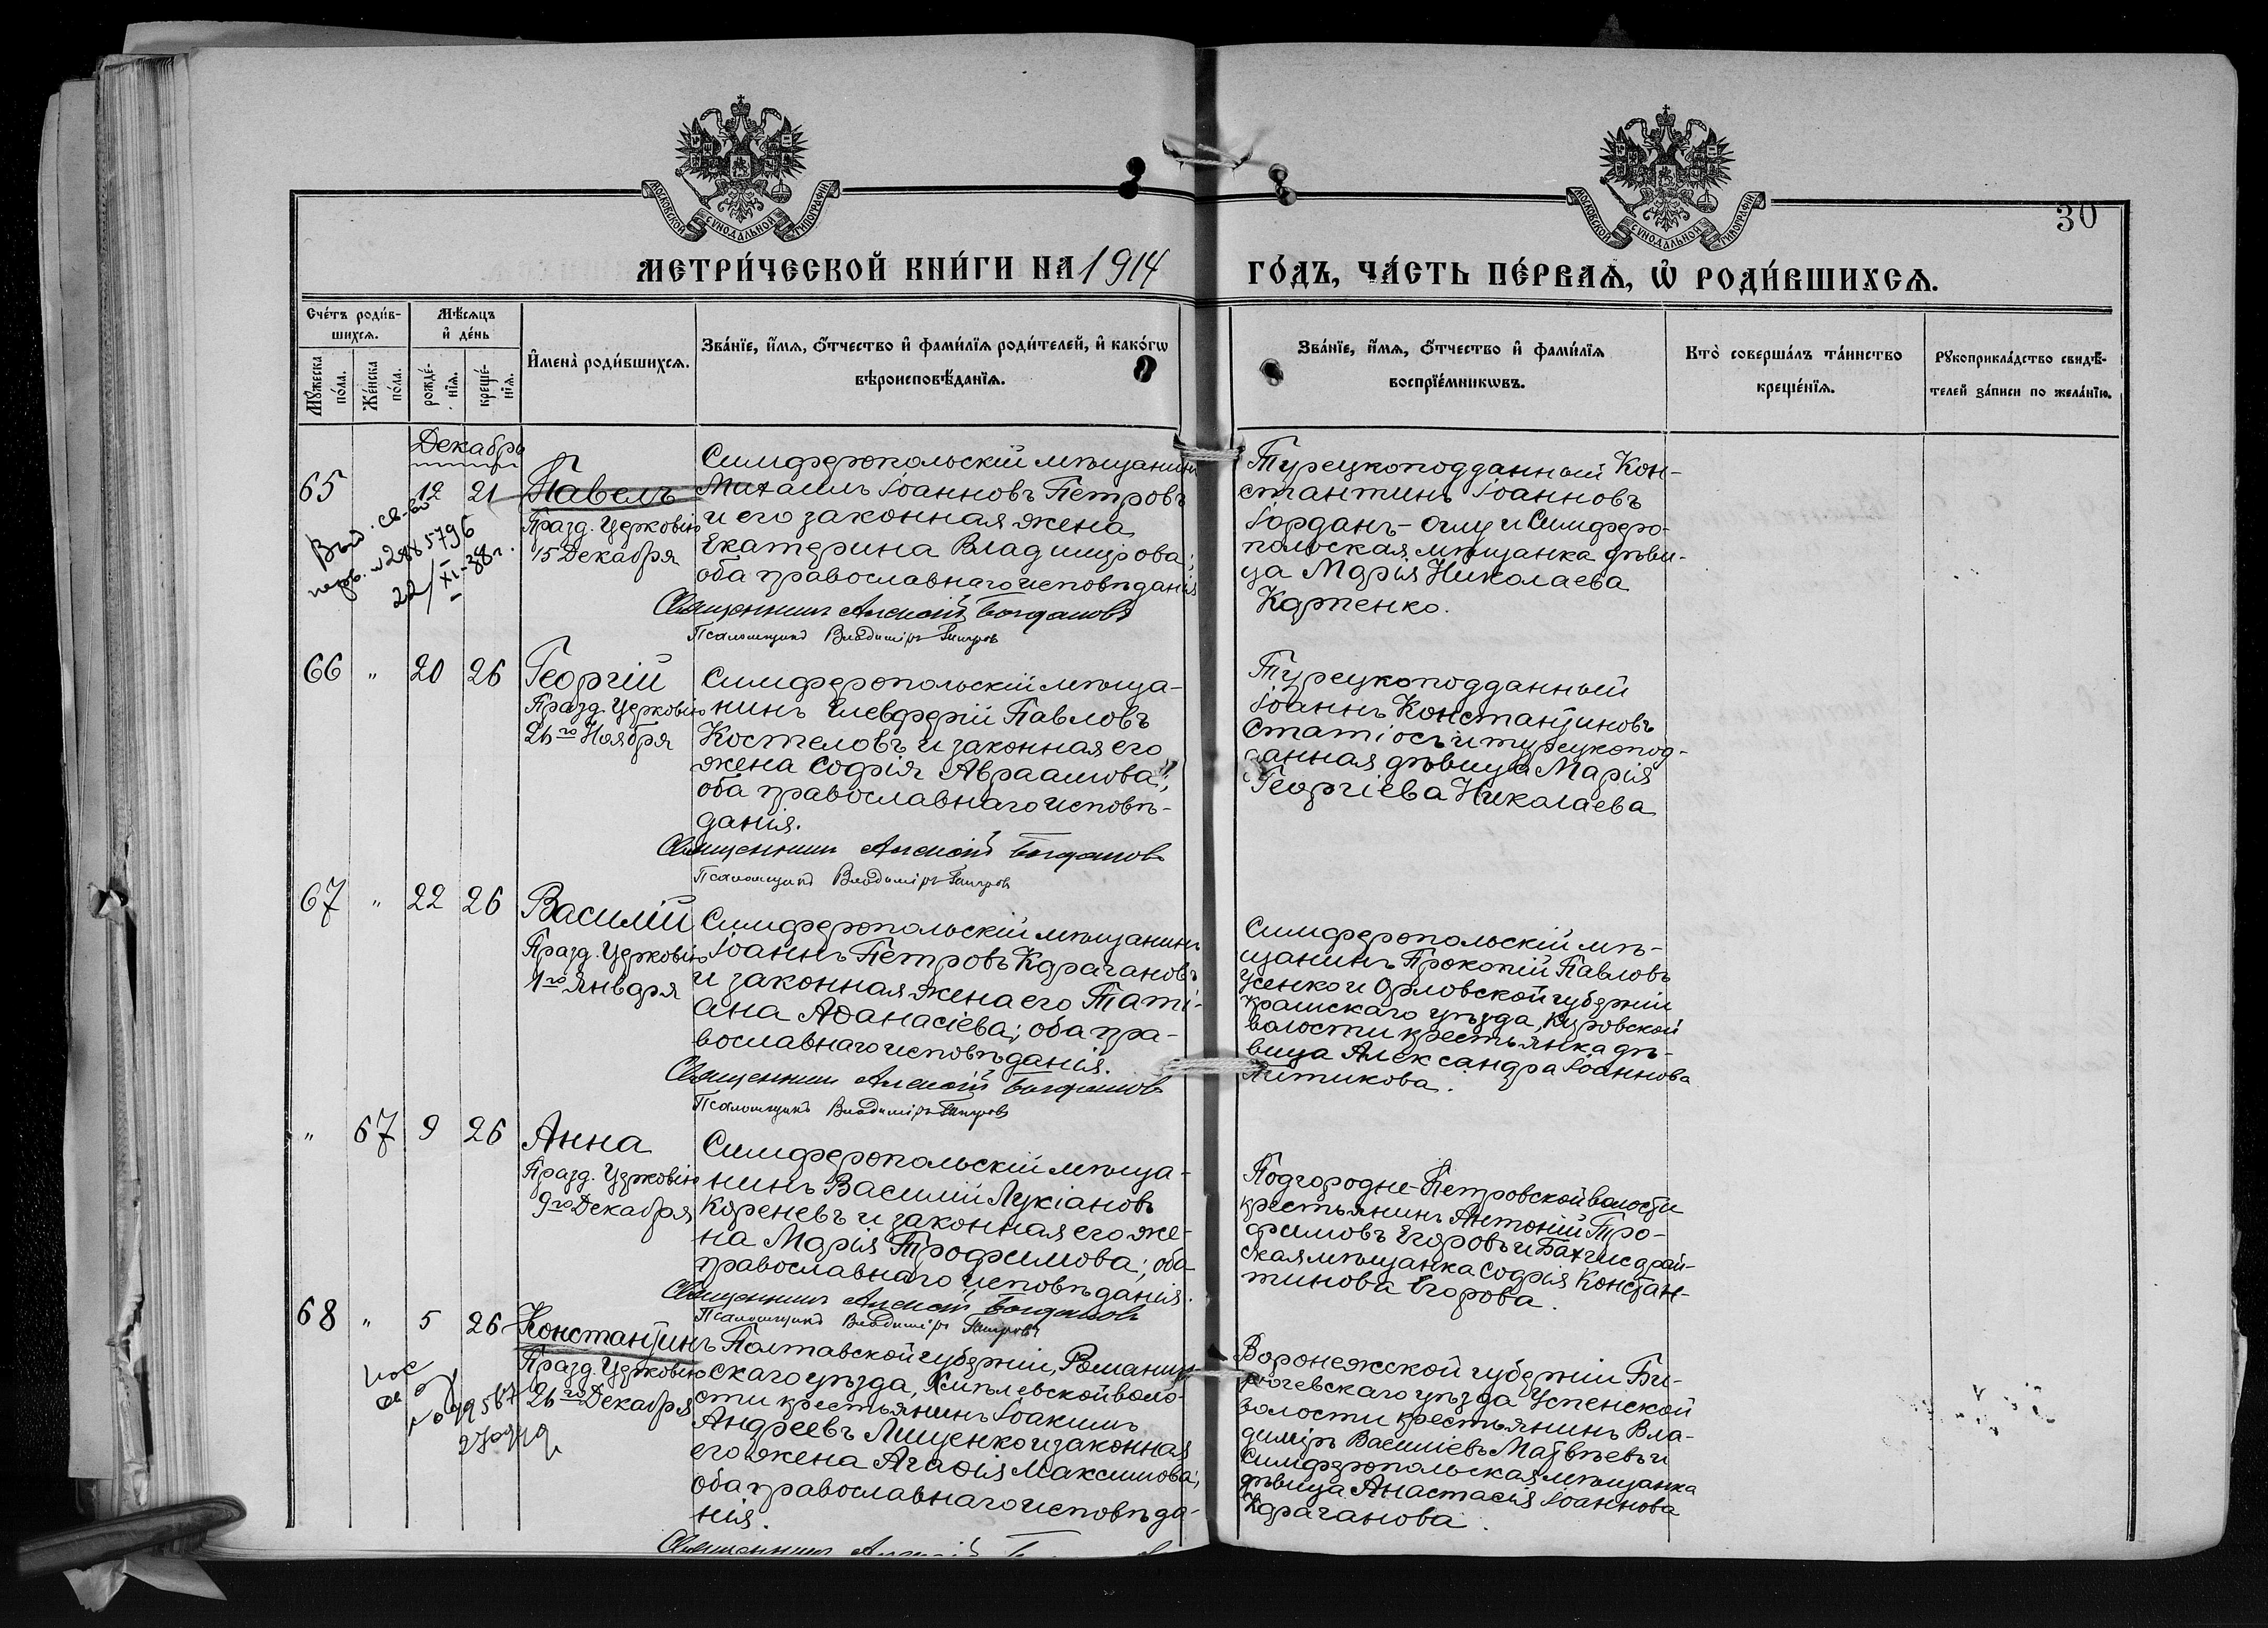 МОСКОВСКОЙ СѴНОДАЛЬНОЙ ТИПОГРАФІИ
МОСКОВСКОЙ СѴНОДАЛЬНОЙ ТИПОГРАФІИ
30
МЕТРИ́ЧЕСКОЙ КНИ́ГИ НА 1914 ГО́ДЪ, ЧА́СТЬ ПЕ́РВАѦ, Ѡ҆ РОДИ́ВШИХСѦ.
Сче́тъ роди́в-
шихсѧ.
Мꙋ́жеска по́ла.
Же́нска по́ла.
Мѣ́сѧцъ
и҆ де́нь
рожде́-
нїѧ.
креще́-
нїѧ.
И҆мена̀ роди́вшихсѧ.
Зва́нїе, и҆́мѧ, ѻ҆́тчество и҆ фами́лїѧ роди́телей, и҆ како́гѡ
вѣроисповѣ́данїѧ.
Зва́нїе, и҆́мѧ, ѻ҆́тчество и҆ фами́лїѧ
воспрїе́мникѡвъ.
Кто̀ соверша́лъ та́инство
креще́нїѧ.
Рꙋкоприкла́дство свидѣ́-
телей за́писи по жела́нїю.
Декабрь
65
12 21
Павелъ
Празд. Церковію
15 Декабря
Выд. св-во
22/XI-38г.
Симферопольскій мѣщанинъ
Михаилъ Іоанновъ Петровъ
и его законная жена
Екатерина Владимірова;
оба православнаго исповѣданія
Священникъ Алексій Богдановъ
Псаломщикъ Владиміръ
Турецкоподданный Кон-
стантинъ Іоанновъ
Іорданъ-оглу и Симферо-
польская мѣщанка дѣви-
ца Марія Николаева
Карпенко.
66 " 20 26
Георгій
Празд. Церковію
26го Ноября
Симферопольскій мѣща-
нинъ Елевферій Павловъ
Костеловъ и законная его
жена Софія Авраамова;
оба православнаго исповѣ-
данія.
Священникъ Алексій Богдановъ
Псаломщикъ Владиміръ
Турецкоподданный
Іоаннъ Константиновъ
Статіосъ и турецкопод-
данная дѣвица Марія
Георгіева Николаева
67 " 22 26
Василій
Празд. Церковію
1го Января
Симферопольскій мѣщанинъ
Іоаннъ Петровъ Карагановъ
и законная жена его Таті-
ана Аѳанасіева; оба пра-
вославнаго исповѣданія.
Священникъ Алексій Богдановъ
Псаломщикъ Владиміръ
Симферопольскій мѣ-
щанинъ Прокопій Павловъ
Усенко и Орловской губерніи
уѣзда, Кировской
волости крестьянка дѣ-
вица Александра Іоаннова
" 67 9 26
Анна
Празд. Церковію
9го Декабря
Симферопольскій мѣща-
нинъ Василій Лукіановъ
Кореневъ и законная его же-
на Марія Трофимова; оба
православнаго исповѣданія.
Священникъ Алексій Богдановъ
Псаломщикъ Владиміръ
Подгородне-Петровской волости
крестьянинъ Антоній Тро-
фимовъ Егоровъ и Бахчисарай-
ская мѣщанка Софія Констан-
тинова Егорова.
68 " 5 26
Константинъ
Празд. Церковію
26го Декабря
Полтавской губерніи, Роменс-
скаго уѣзда, воло-
сти крестьянинъ Іоакимъ
Андреевъ Лищенко и законная
его жена Агаѳія Максимова;
оба православнаго исповѣда-
нія.
Священникъ Алексій
Воронежской губерніи Би-
рючевскаго уѣзда Успенской
волости крестьянинъ Вла-
диміръ Василіевъ Матвѣевъ и
Симферопольская мѣщанка
дѣвица Анастасія Іоаннова
Караганова.